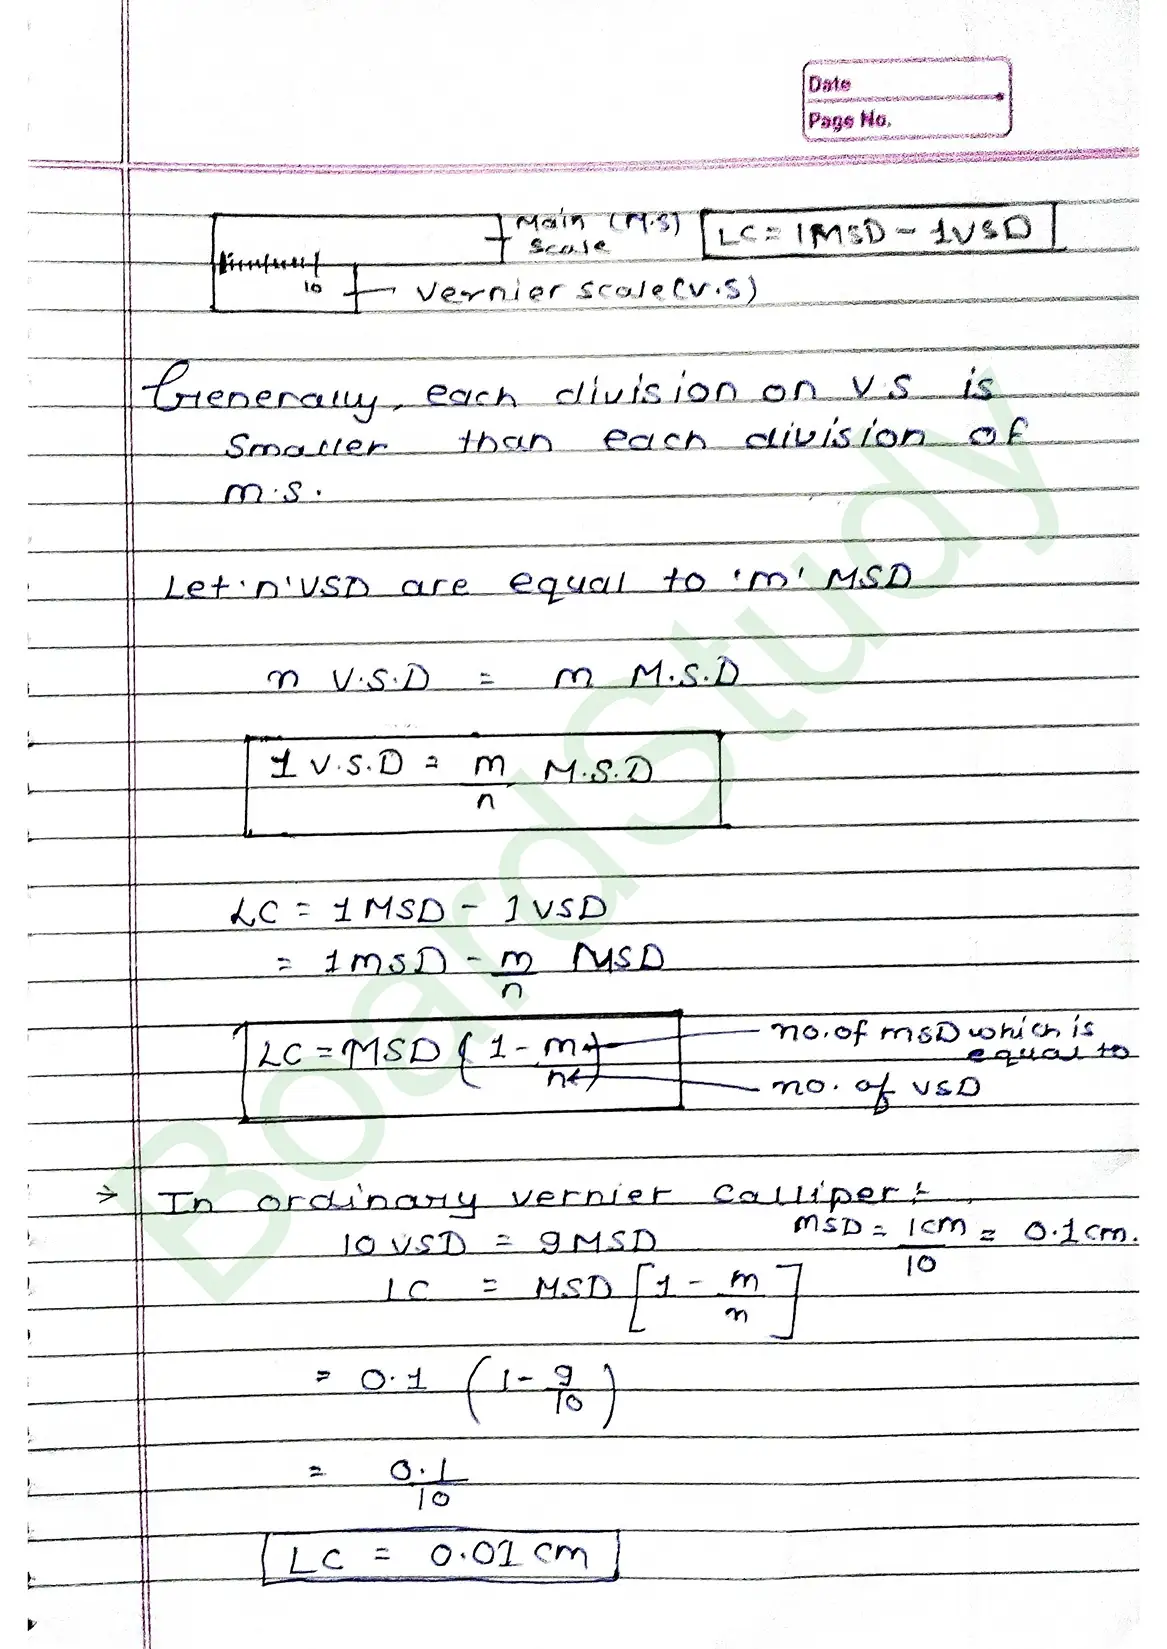 Date
Page No.
Main (M.S)
Scale
LC = 1MSD - 1VSD
10
Vernier scale (V.S)
Generally, each division on V.S is
smaller than each division of
m.s.
Let 'n' VSD are equal to 'm' MSD
n V.S.D = m M.S.D
1 V.S.D = m/n M.S.D
LC = 1MSD - 1VSD
= 1MSD - m/n MSD
LC = MSD (1 - m/n)
no. of MSD which is
equal to
no. of VSD
→ In ordinary vernier calliper :-
10 VSD = 9 MSD
MSD = 1cm/10 = 0.1cm.
LC = MSD [1 - m/n]
= 0.1 (1 - 9/10)
= 0.1/10
LC = 0.01 cm
BoardStudy